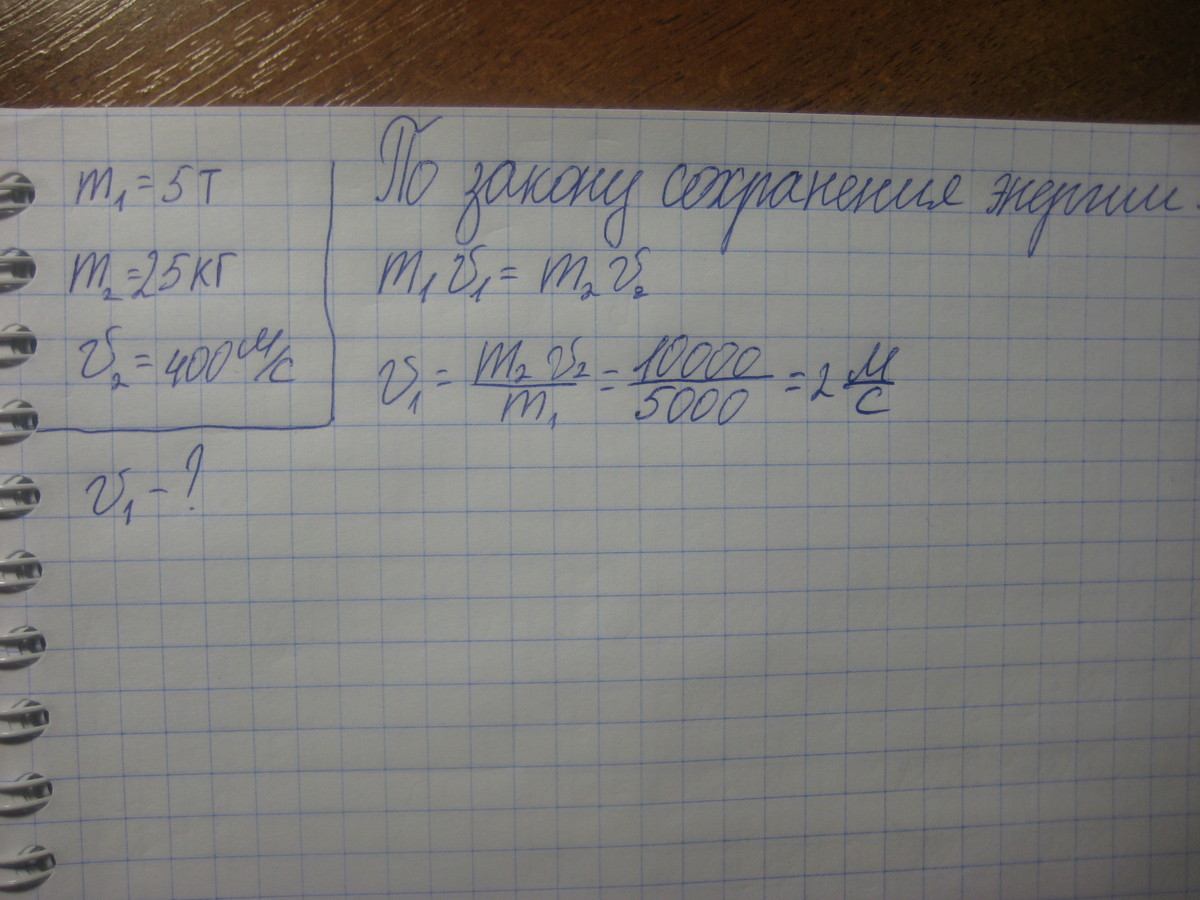 m₁ = 5 т
m₂ = 25 кг
v₂ = 400 м/с
v₁ - ?
По закону сохранения энергии:
m₁ v₁ = m₂ v₂
v₁ = m₂ v₂ / m₁ = 10000 / 5000 = 2 м/с